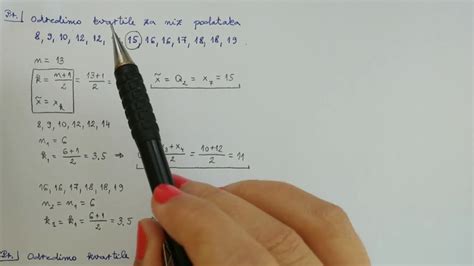 Pr. Odredimo kvartile za niz podataka
8, 9, 10, 12, 12, 15, 16, 16, 17, 18, 18, 19.
n = 13
k = \frac{n+1}{2} = \frac{13+1}{2} = x̃ = Q₂ = x₇ = 15
x̃ = x_k
8, 9, 10, 12, 12, 14
n₁ = 6
k₁ = \frac{6+1}{2} = 3,5 ⇒ \frac{x₃+x₄}{2} = \frac{10+12}{2} = 11
16, 16, 17, 18, 18, 19
n₂ = n₁ = 6
k₂ = k₁ = \frac{6+1}{2} = 3,5
Pr. Odredimo kvartile